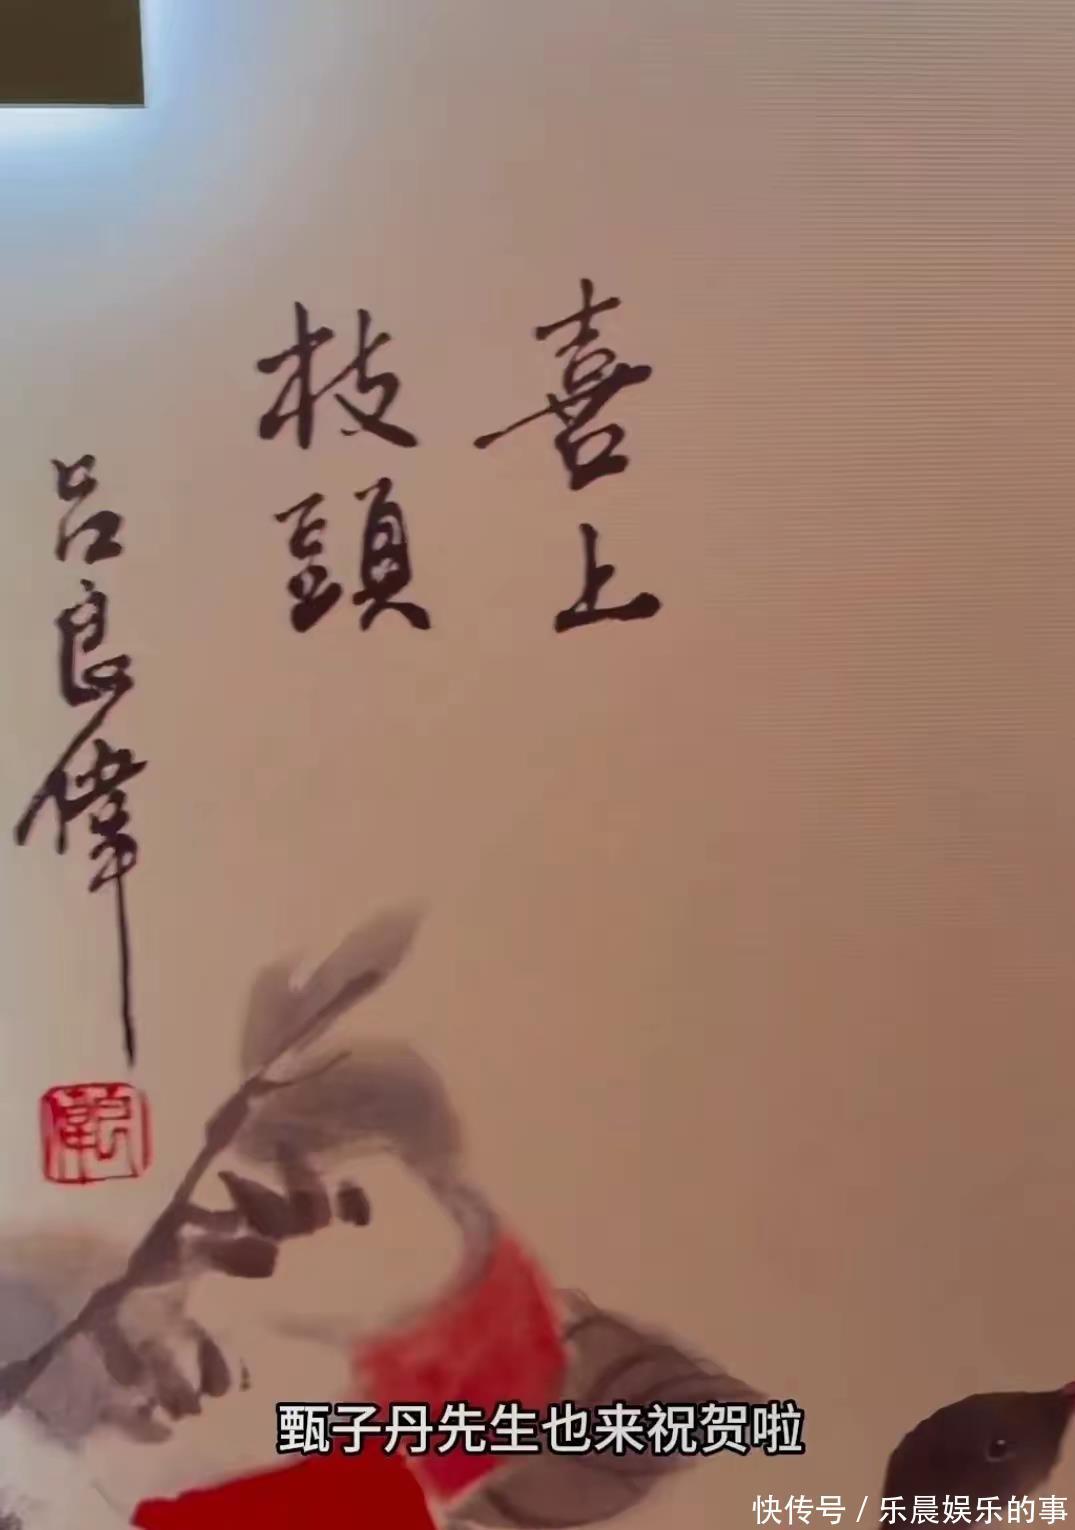 喜上
枝頭
吕良偉
甄子丹先生也来祝贺啦
快传号 / 乐晨娱乐的事